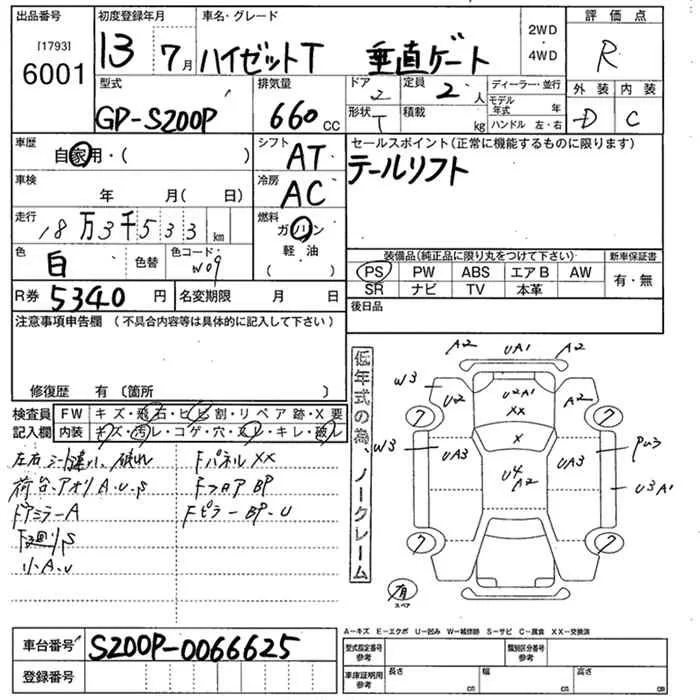 出品番号
[1793]
6001
初度登録年月
13 7月
車名・グレード
ハイゼットT 垂直ゲート
2WD
・
4WD
評価点
R
型式
GD-S200P
排気量
660 CC
ドア
2
定員
2 人
形状
T
積載
kg
ディーラー・並行
モデル年式 年
ハンドル 左・右
外装
D
内装
C
車歴
自家用・( )
シフト
AT
セールスポイント(正常に機能するものに限ります)
テールリフト
車検
年 月( 日)
冷房
AC
走行
18万3千533 km
燃料
ガソリン
軽・油
( )
色
白
色替
色コード
W09
装備品(純正品に限り丸をつけて下さい)
新車保証書
PS PW ABS エアB AW
有・無
SR ナビ TV 本革
R券 5340 円
名変期限 月 日
後日品
注意事項申告欄 (不具合内容等は具体的に記入して下さい)
修復歴 有 〔箇所 〕
検査員
記入欄
FW キズ・飛石・ヒビ割・リペア跡・X要
内装 キズ・汚レ・コゲ・穴・ヌレ・キレ・破レ
左右シート違い、破れ
荷台、アオリA、U、S
FパネルXX
FフロアBP
Fドアミラー A
FピラーBP-U
F廻りS
小A、U
低年式の為、ノークレーム
A2 UA1 A2
W3 U2 U2A1 A2
XX
7 7
X
W3 UA3 UA3 PU3
U4
A2
U3A1
7 7
有
スペア
A−キズ E−エクボ U−凹み W−補修跡 S−サビ C−腐食 XX−交換済
車台番号 S200P-0066625
登録番号
型式指定番号
参考
類別区分番号
参考
車庫証明用
参考
長さ cm
幅 cm
高さ cm